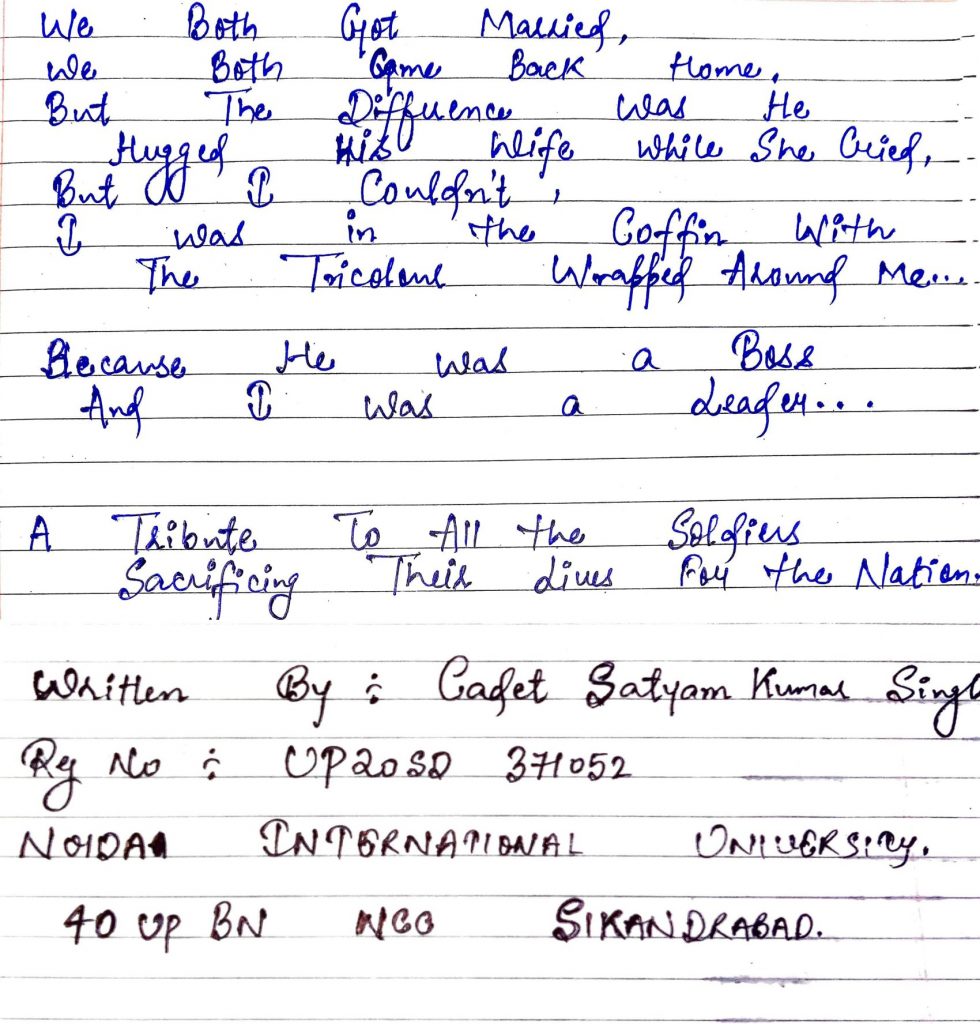 We Both Got Married,
We Both Came Back Home,
But The Difference Was He
Hugged His Wife While She Cried,
But I Couldn't,
I was in the Coffin With
The Tricolour Wrapped Around Me...
Because He was a Boss
And I was a Leader...
A Tribute To All the Soldiers
Sacrificing Their Lives For the Nation.
Written By : Cadet Satyam Kumar Singh
Rg No : UP20SD 371052
NOIDA INTERNATIONAL UNIVERSITY.
40 UP BN NCC SIKANDRABAD.